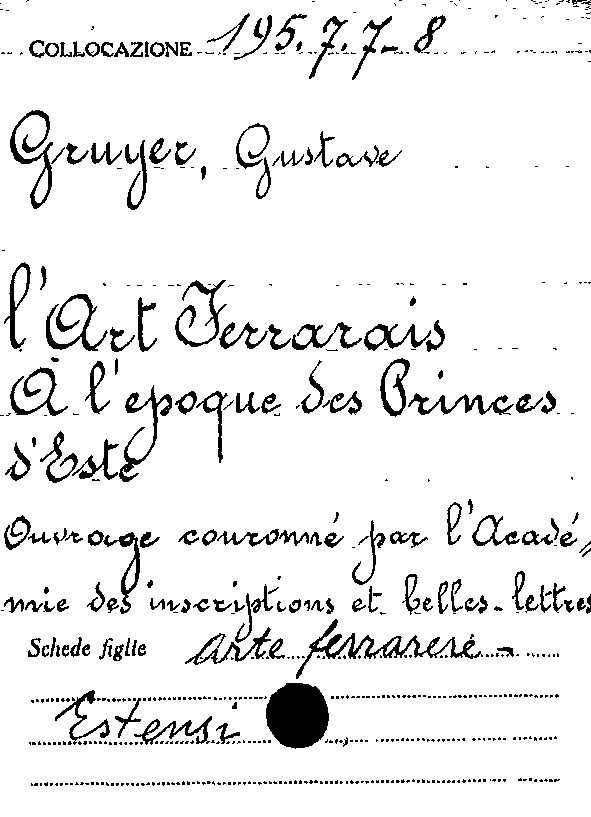 COLLOCAZIONE 195.7.7-8
Gruyer, Gustave
l'Art Ferrarais
À l'epoque des Princes
d'Este
Ouvrage couronné par l'Acadé=
mie des inscriptions et belles-lettres
Schede figlie arte ferrarese -
Estensi